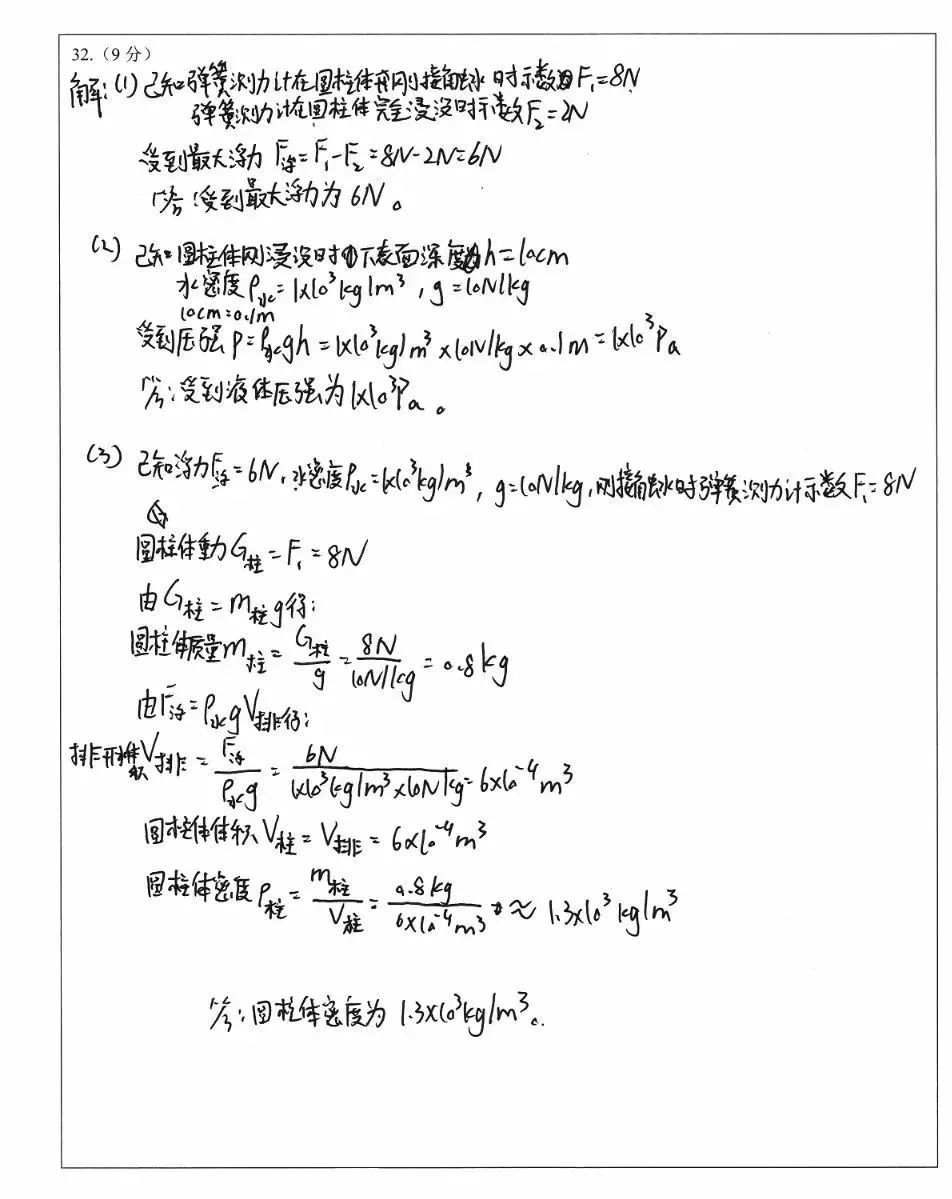 32.（9 分）
解：(1) 已知弹簧测力计在圆柱体刚接触水时示数为F₁=8N
弹簧测力计在圆柱体完全浸没时示数F₂=2N
受到最大浮力 F浮=F₁-F₂=8N-2N=6N
答：受到最大浮力为6N。
(2) 已知圆柱体刚浸没时下表面深度为h=10cm
水密度ρ水=1×10³kg/m³，g=10N/kg
10cm=0.1m
受到压强P=ρ水gh=1×10³kg/m³×10N/kg×0.1m=1×10³Pa
答：受到液体压强为1×10³Pa。
(3) 已知浮力F浮=6N，水密度ρ水=1×10³kg/m³，g=10N/kg，刚接触水时弹簧测力计示数F₁=8N
圆柱体重力G柱=F₁=8N
由G柱=m柱g得：
圆柱体质量m柱=G柱/g=8N/10N/kg=0.8kg
由F浮=ρ水gV排得：
排开体积V排=F浮/ρ水g=6N/1×10³kg/m³×10N/kg=6×10⁻⁴m³
圆柱体体积V柱=V排=6×10⁻⁴m³
圆柱体密度ρ柱=m柱/V柱=0.8kg/6×10⁻⁴m³≈1.3×10³kg/m³
答：圆柱体密度为1.3×10³kg/m³。